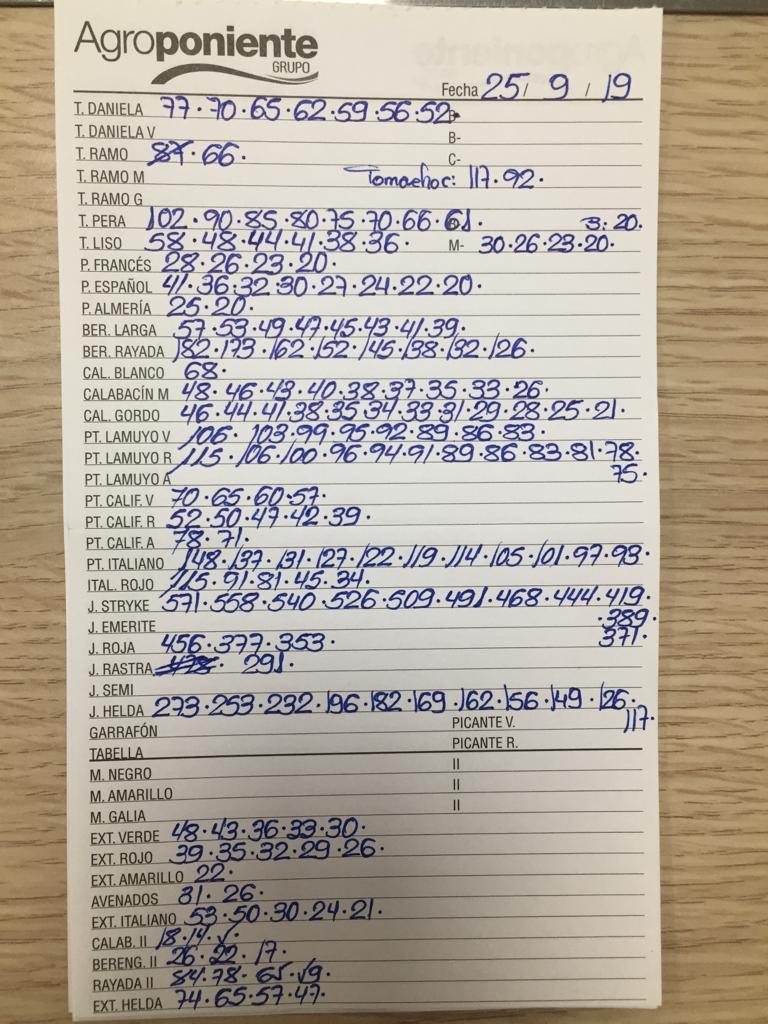 Agroponiente
GRUPO
Fecha 25 / 9 / 19
T. DANELA 77·70·65·62·59·56·52·
T. DANIELA V B-
T. RAMO 87·66· C-
T. RAMO M Tomaehoc: 117·92·
T. RAMO G
T. PERA 102·90·85·80·75·70·66·61· B: 20·
T. LISO 58·48·44·41·38·36· M- 30·26·23·20·
P. FRANCÉS 28·26·23·20·
P. ESPAÑOL 41·36·32·30·27·24·22·20·
P. ALMERÍA 25·20·
BER. LARGA 57·53·49·47·45·43·41·39·
BER. RAYADA 182·173·162·152·145·138·132·126·
CAL. BLANCO 68·
CALABACÍN M 48·46·43·40·38·37·35·33·26·
CAL. GORDO 46·44·41·38·35·34·33·31·29·28·25·21·
PT. LAMUYO V 106·103·99·95·92·89·86·83·
PT. LAMUYO R 115·106·100·96·94·91·89·86·83·81·78·
PT. LAMUYO A 75·
PT. CALIF. V 70·65·60·57·
PT. CALIF. R 52·50·47·42·39·
PT. CALIF. A 78·71·
PT. ITALIANO 148·137·131·127·122·119·114·105·101·97·93·
ITAL. ROJO 115·91·81·45·34·
J. STRYKE 571·558·540·526·509·491·468·444·419·
J. EMERITE ·389·
J. ROJA 456·377·353· 371·
J. RASTRA 478· 291·
J. SEMI
J. HELDA 273·253·232·196·182·169·162·156·149·126·
GARRAFÓN PICANTE V. 117·
TABELLA PICANTE R.
M. NEGRO II
M. AMARILLO II
M. GALIA II
EXT. VERDE 48·43·36·33·30·
EXT. ROJO 39·35·32·29·26·
EXT. AMARILLO 22·
AVENADOS 31·26·
EXT. ITALIANO 53·50·30·24·21·
CALAB. II 18·14·
BERENG. II 26·22·17·
RAYADA II 84·78·65·
EXT. HELDA 74·65·57·47·